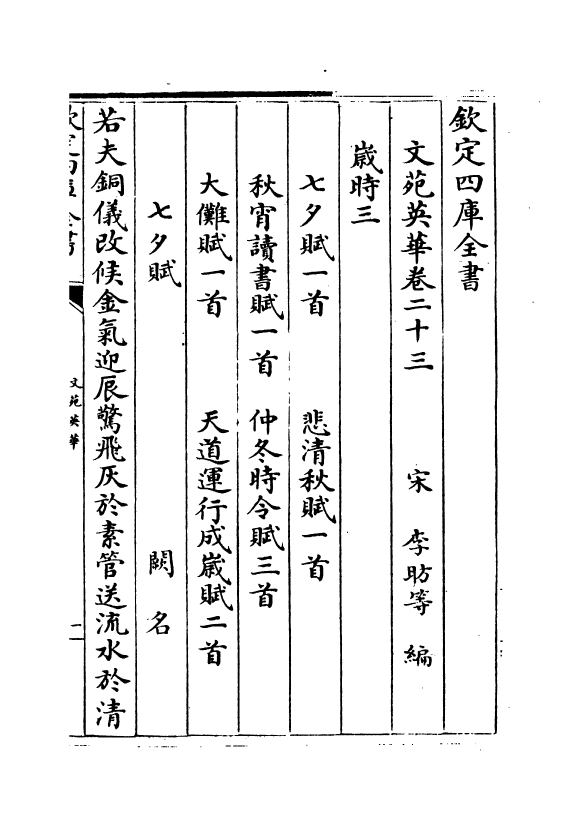 欽定四庫全書
文苑英華卷二十三　宋　李昉等　編
歲時三
七夕賦一首　悲清秋賦一首
秋宵讀書賦一首　仲冬時令賦三首
大儺賦一首　天道運行成歲賦二首
七夕賦　闕名
若夫銅儀改候金氣迎辰驚飛灰於素管送流水於清
欽定四庫全書
文苑英華